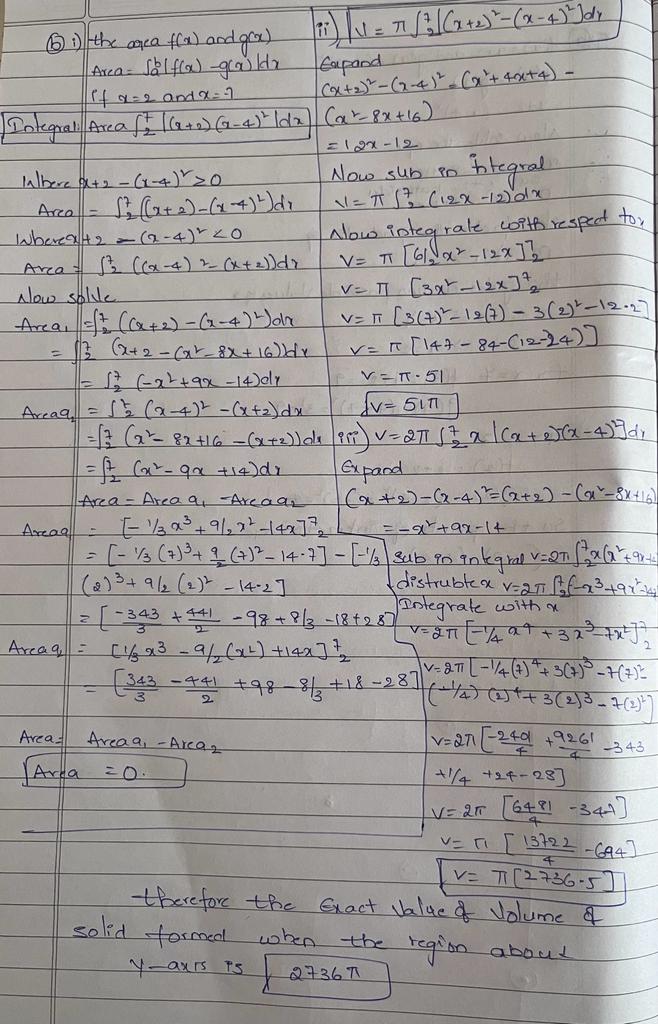 ⑥ i) the area f(x) and g(x)
Area = ∫ₐᵇ |f(x) - g(x)| dx
if x=2 and x=7
Integral: Area ∫₂⁷ |(x+2) (x-4)² | dx
Where x+2 - (x-4)² ≥ 0
Area = ∫₂⁷ ((x+2) - (x-4)²) dx
Where x+2 - (x-4)² < 0
Area = ∫₂⁷ ((x-4)² - (x+2)) dx
Now solve
Area₁ = ∫₂⁷ ((x+2) - (x-4)²) dx
= ∫₂⁷ (x+2 - (x² - 8x + 16)) dx
= ∫₂⁷ (-x² + 9x - 14) dx
Area a₂ = ∫₂⁷ (x-4)² - (x+2) dx
= ∫₂⁷ (x² - 8x + 16 - (x+2)) dx
= ∫₂⁷ (x² - 9x + 14) dx
Area = Area a₁ - Area a₂
Area a₁ = [-1/3 x³ + 9/2 x² - 14x]⁷₂
= [-1/3 (7)³ + 9/2 (7)² - 14·7] - [-1/3
(2)³ + 9/2 (2)² - 14·2]
= [-343/3 + 441/2 - 98 + 8/3 - 18 + 28]
Area a₂ = [1/3 x³ - 9/2 (x²) + 14x]⁷₂
= [343/3 - 441/2 + 98 - 8/3 + 18 - 28]
Area = Area a₁ - Area₂
Area = 0.
ii) V = π ∫₂⁷ [(x+2)² - (x-4)²] dx
Expand
(x+2)² - (x-4)² = (x² + 4x + 4) -
(x² - 8x + 16)
= 12x - 12
Now sub in integral
V = π ∫₂⁷ (12x - 12) dx
Now integrate with respect to x
V = π [6/2 x² - 12x]⁷₂
V = π [3x² - 12x]⁷₂
V = π [3(7)² - 12(7) - 3(2)² - 12·2]
V = π [147 - 84 - (12 - 24)]
V = π · 51
V = 51π
iii) V = 2π ∫₂⁷ x |(x+2) (x-4)²] dx
Expand
(x+2) - (x-4)² = (x+2) - (x² - 8x + 16)
= -x² + 9x - 14
Sub in integral V = 2π ∫₂⁷ x (x² + 9x
distrubte x V = 2π ∫₂⁷ (-x³ + 9x²
Integrate with x
V = 2π [-1/4 x⁴ + 3x³ - 7x²]⁷₂
V = 2π [-1/4 (7)⁴ + 3(7)³ - 7(7)²
(-1/4) (2)⁴ + 3(2)³ - 7(2)²]
V = 2π [-2401/4 + 9261/4 - 343
+1/4 + 24 - 28]
V = 2π [6481/4 - 347]
V = π [13722/4 - 694]
V = π [2736.5]
therefore the Exact Value of Volume of
solid formed when the region about
y-axis is 2736π